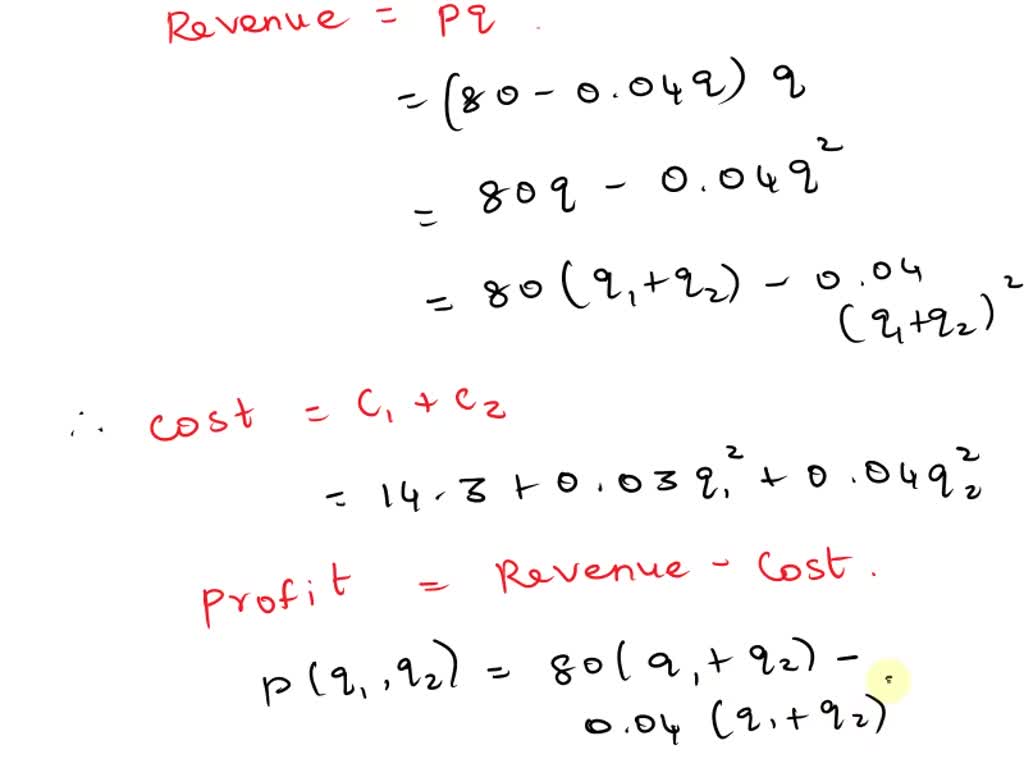 Revenue = pq.
= (80 - 0.04q) q
= 80q - 0.04q²
= 80(q₁+q₂) - 0.04
(q₁+q₂)²
∴ cost = C₁ + C₂
= 14.3 + 0.03q₁² + 0.04q₂²
Profit = Revenue - Cost.
P(q₁,q₂) = 80(q₁+q₂) -
0.04 (q₁+q₂)